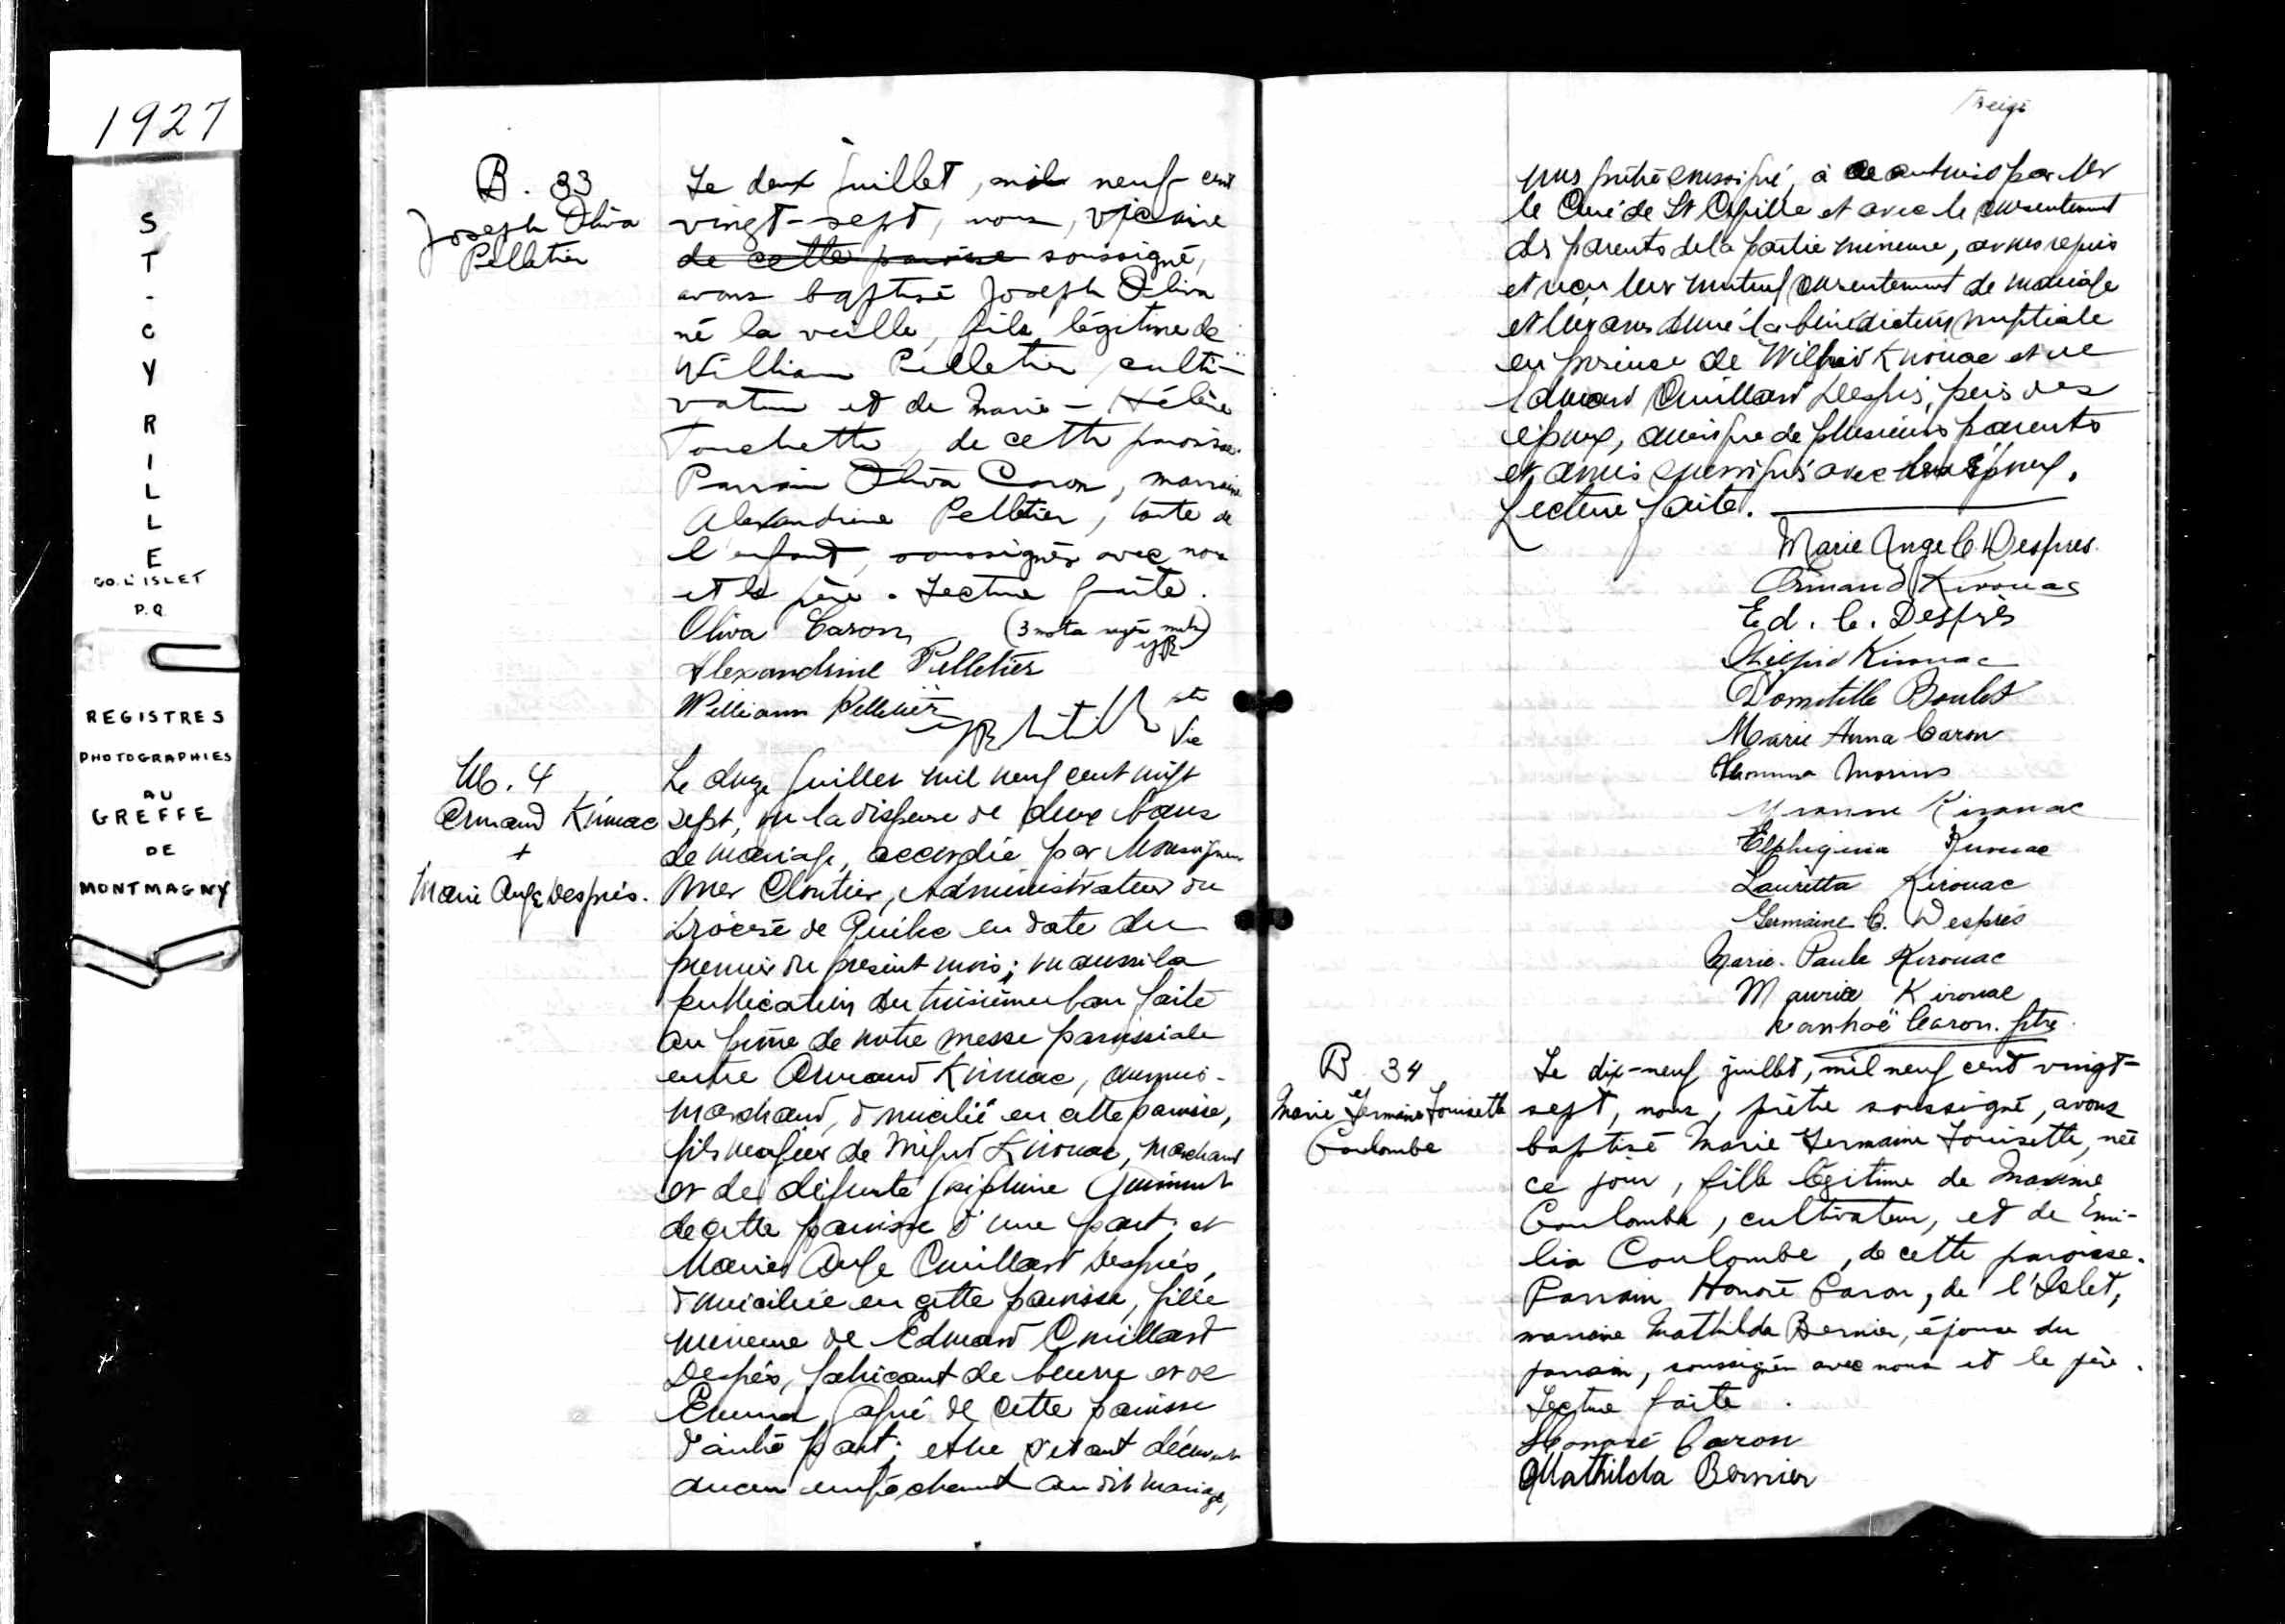 1927
ST-CYRILLE
CO. L'ISLET
P.Q
REGISTRES
PHOTOGRAPHIES
AU
GREFFE
DE
MONTMAGNY
B. 33
Joseph Oliva
Pelletier
Le deux juillet, mil neuf cent
vingt-sept, nous, vicaire
de cette paroisse soussigné,
avons baptisé Joseph Oliva
né la veille, fils légitime de
William Pelletier culti-
vateur et de Marie-Hélène
Touchette, de cette paroisse.
Parrain Oliva Caron, marraine
Alexandrine Pelletier, tante de
l'enfant, soussignés avec nous
et le père. Lecture faite.
Oliva Caron (3 mots rayés nuls)
Alexandrine Pelletier
William Pelletier
Vic
M. 4
Armand Kirouac
+
Marie Ange Després.
Le douze juillet mil neuf cent vingt
sept, vu la dispense de deux bans
de mariage, accordée par Monseigneur
Omer Cloutier, Administrateur du
Diocèse de Québec en date du
premier du présent mois; vu aussi la
publication du troisième ban faite
au prône de notre messe paroissiale
entre Armand Kirouac, commis-
marchand, domicilié en cette paroisse,
fils majeur de Wilfrid Kirouac, marchand
et de défunte Joséphine Guimont
de cette paroisse d'une part; et
Marie Ange Couillard Després,
domiciliée en cette paroisse, fille
mineure de Edouard Couillard
Després, fabricant de beurre et de
Emma de cette paroisse
d'autre part; et ne s'étant découvert
aucun empêchement au dit mariage,
nous prêtre soussigné, à ce autorisé par Mr
le Curé de St Cyrille et avec le consentement
des parents de la partie mineure, avons requis
et reçu leur mutuel consentement de mariage
et leur avons donné la bénédiction nuptiale
en présence de Wilfrid Kirouac et de
Edouard Couillard Després, pères des
époux, ainsi que de plusieurs parents
et amis soussignés avec les époux.
Lecture faite.
Marie Ange C. Despres.
Armand Kirouac
Ed. C. Després
Wilfrid Kirouac
Domitille Boulet
Marie Anna Caron
Morin
Yvonne Kirouac
Elphigénia Kirouac
Lauretta Kirouac
Germaine C. Després
Marie-Paule Kirouac
Maurice Kirouac
Ivanhoë Caron. ptre.
B 34
Marie Germaine Louisette
Coulombe
Le dix-neuf juillet, mil neuf cent vingt-
sept, nous, prêtre soussigné, avons
baptisé Marie Germaine Louisette, née
ce jour, fille légitime de Maxime
Coulombe, cultivateur, et de Emi-
lia Coulombe, de cette paroisse.
Parrain Honoré Caron, de l'Islet,
marraine Mathilda Bernier, épouse du
parrain, soussignés avec nous et le père.
Lecture faite.
Honoré Caron
Mathilda Bernier